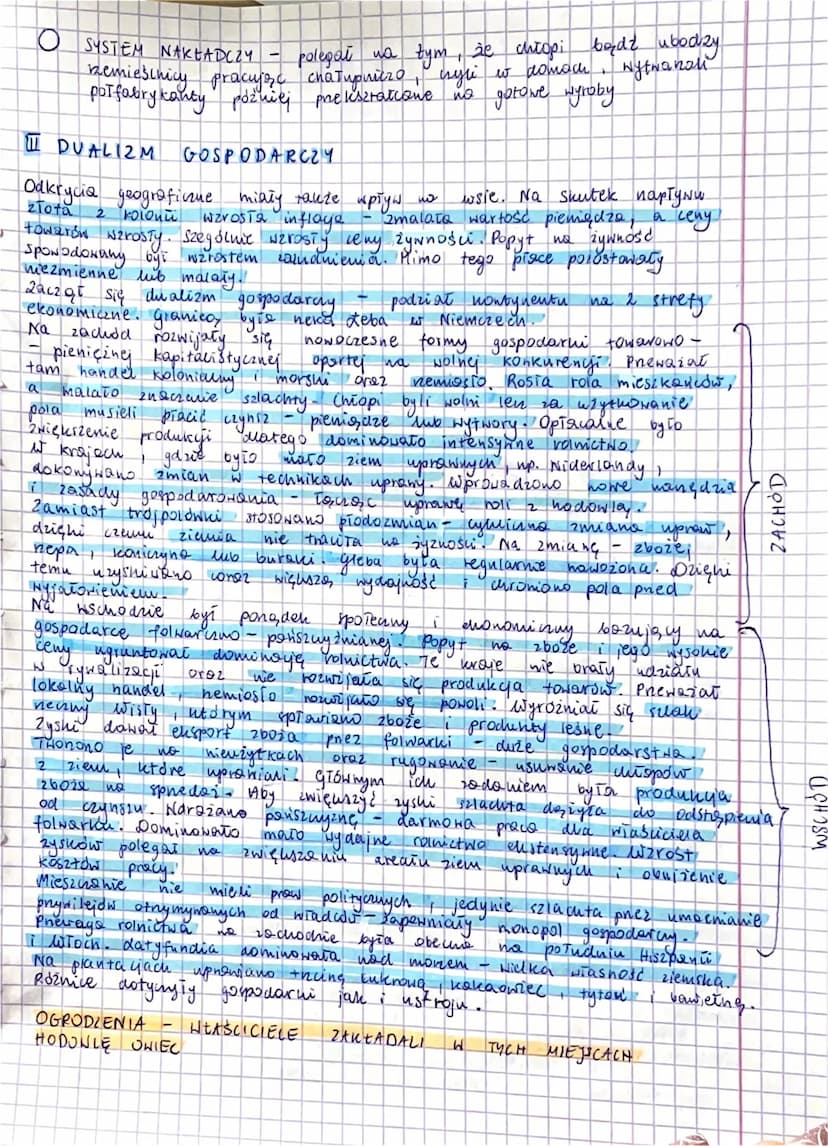 SYSTEM NAKŁADCZY – polegał na tym, że chłopi bądź ubodzy
rzemieślnicy pracując chałupniczo, czyli w domach, wytwarzali
półfabrykanty później przekształcane na gotowe wyroby
III DUALIZM GOSPODARCZY
Odkrycia geograficzne miały także wpływ na wsie. Na skutek napływu
złota z kolonii wzrosła inflacja – zmalała wartość pieniądza, a ceny
towarów wzrosły. Szególnie wzrosły ceny żywności. Popyt na żywność
spowodowany był wzrostem zaludnienia. Mimo tego płace pozostawały
niezmienne lub malały.
Zaczął się dualizm gospodarczy – podział kontynentu na 2 strefy
ekonomiczne. Granicą była rzeka Łeba w Niemczech.
Na zachód rozwijały się nowoczesne formy gospodarki towarowo –
– pieniężnej kapitalistycznej opartej na wolnej konkurencji. Przeważał
tam handel kolonialny i morski oraz rzemiosło. Rosła rola mieszkańców,
a malało znaczenie szlachty. Chłopi byli wolni lecz za użytkowanie
pola musieli płacić czynsz – pieniądze lub wytwory. Opłacalne było
zwiększenie produkcji dlatego dominowało intensywne rolnictwo.
W krajach, gdzie było mało ziem uprawnych, np. Niderlandy,
dokonywano zmian w technikach uprawy. Wprowadzono nowe narzędzia
i zasady gospodarowania – łącząc uprawę roli z hodowlą.
Zamiast trójpolówki stosowano płodozmian – cykliczna zmiana upraw,
dzięki czemu ziemia nie traciła na żyzności. Na zmianę – zboże,
rzepa, koniczyna lub buraki. Gleba była regularnie nawożona. Dzięki
temu uzyskiwano coraz większą wydajność i chroniono pola przed
wyjałowieniem.
Na wschodzie był porządek społeczny i ekonomiczny bazujący na
gospodarce folwarczno – pańszczyźnianej. Popyt na zboże i jego wysokie
ceny ugruntował dominację rolnictwa. Te kraje nie brały udziału
w rywalizacji oraz nie rozwijała się produkcja towarów. Przeważał
lokalny handel, rzemiosło rozwijało się powoli. Wyróżniał się szlak
rzeczny Wisły, którym spławiano zboże i produkty leśne.
Zyski dawał eksport zboża przez folwarki – duże gospodarstwa.
Tworzono je na nieużytkach oraz rugowanie – usuwanie chłopów
z ziem, które uprawiali. Głównym ich zadaniem była produkcja
zboża na sprzedaż. Aby zwiększyć zyski szlachta dążyła do odstąpienia
od czynszu. Narażano pańszczyznę – darmowa praca dla właściciela
folwarku. Dominowało mało wydajne rolnictwo ekstensywne. Wzrost
zysków polegał na zwiększaniu areału ziem uprawnych i obniżenie
kosztów pracy.
Mieszczanie nie mieli praw politycznych, jedynie szlachta przez umacnianie
przywilejów otrzymywanych od władców – zapewniały monopol gospodarczy.
Przewaga rolnictwa na zachodzie była obecna na południu Hiszpanii
i Włoch. Latyfundia dominowała nad morzem – wielka własność ziemska.
Na plantacjach uprawiano trzcinę cukrową, kakaowiec, tytoń i bawełnę.
Różnice dotyczyły gospodarki jak i ustroju.
OGRODZENIA – WŁAŚCICIELE ZAKŁADALI W TYCH MIEJSCACH
HODOWLĘ OWIEC
ZACHÓD
WSCHÓD